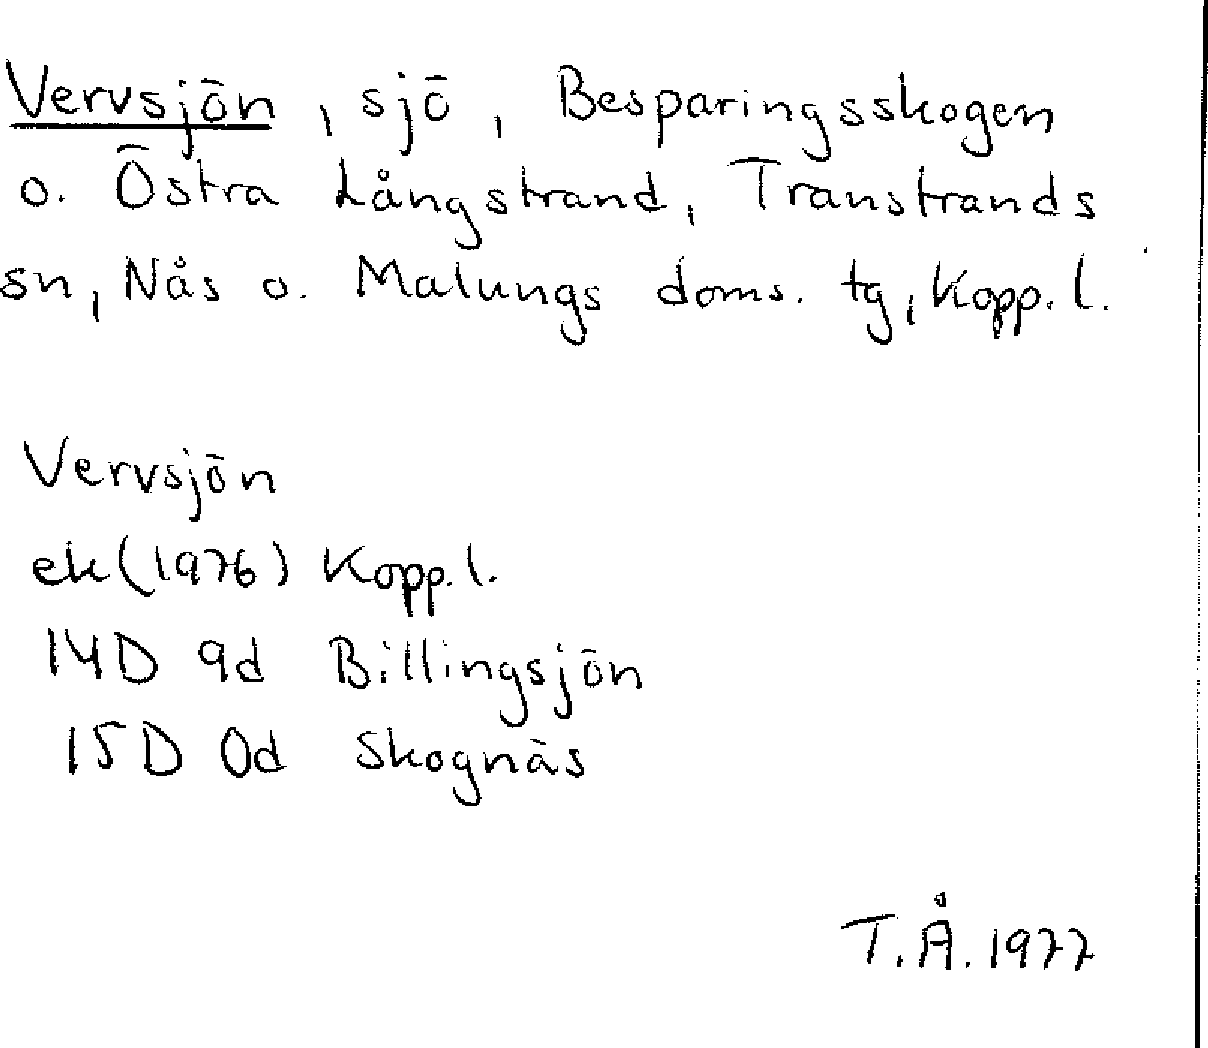 Vervsjön, sjö, Besparingsskogen
o. Östra Långstrand, Transtrands
sn, Nås o. Malungs doms. tg, Kopp. l.
Vervsjön
ek (1976) Kopp. l.
14D 9d Billingsjön
15D 0d Skognäs
T.Å. 1977